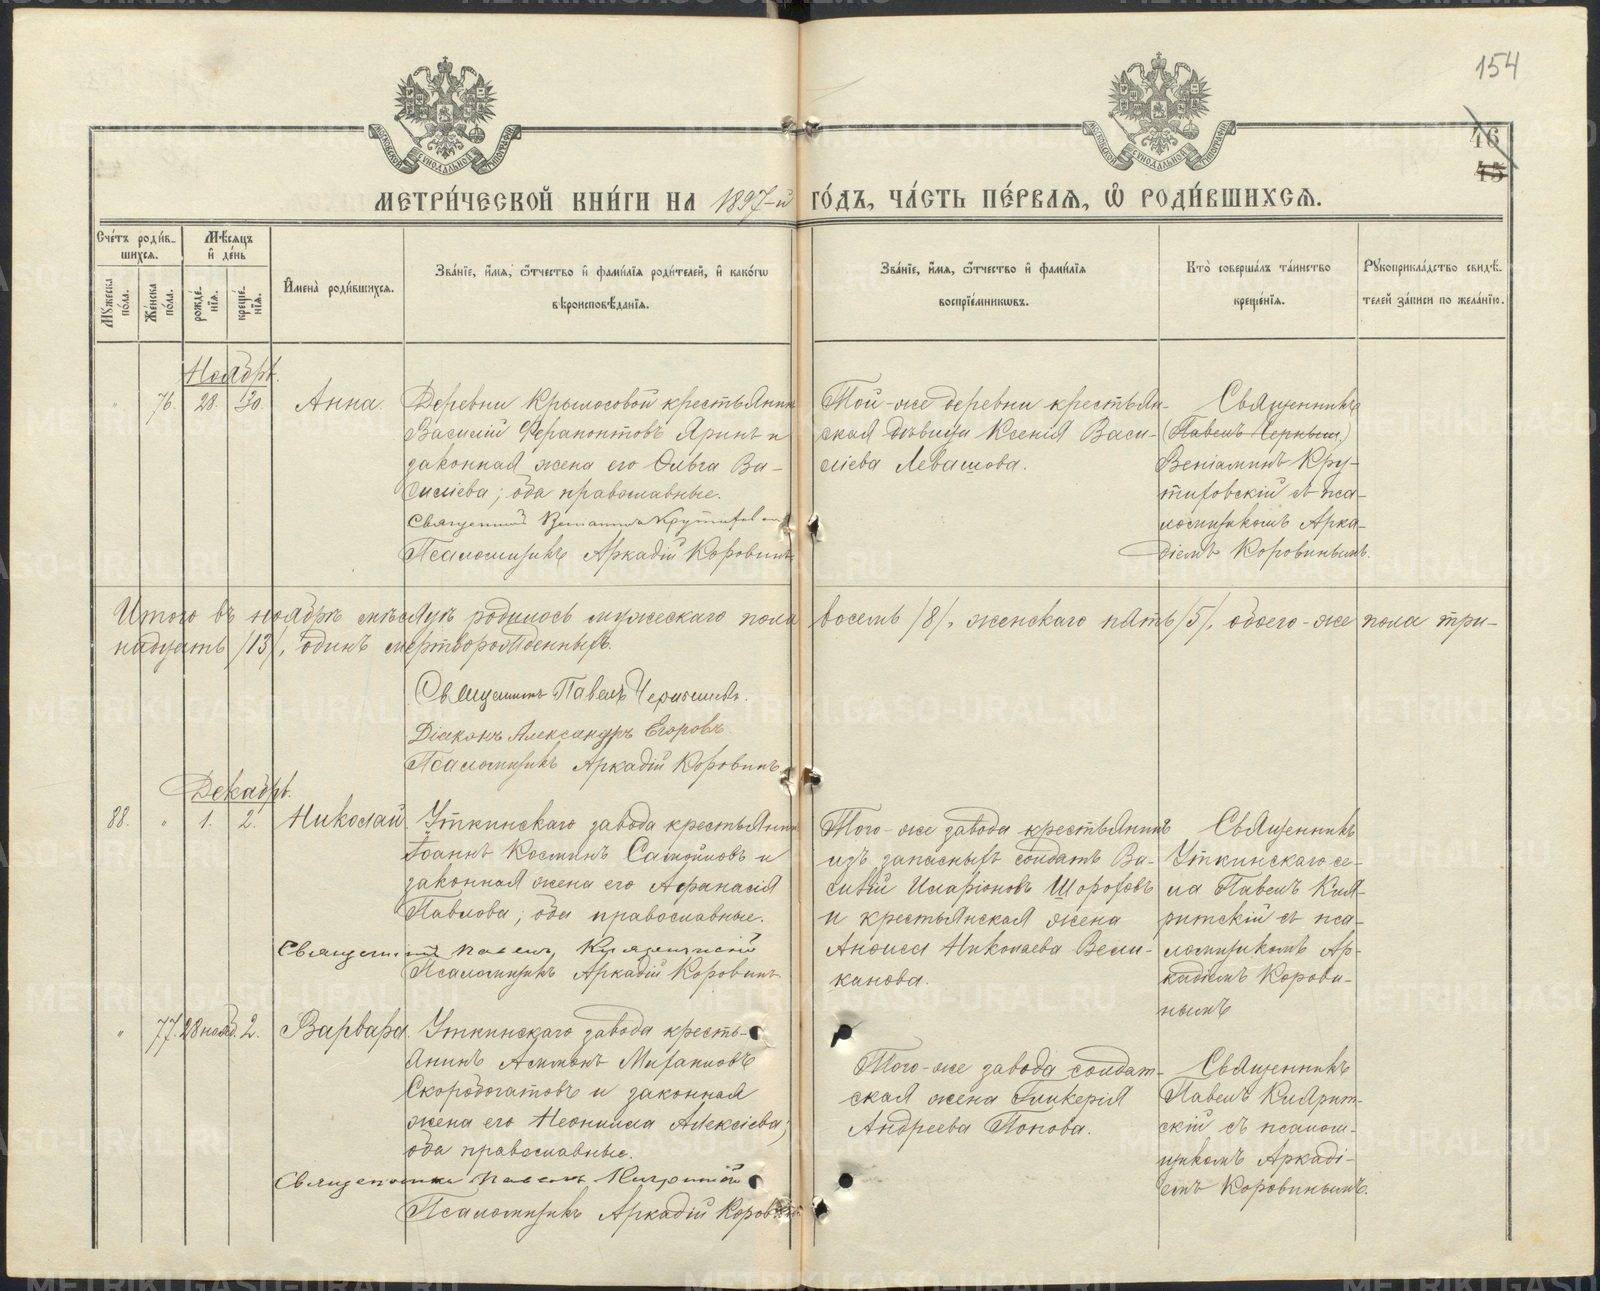 154
46
45
МЕТРИ́ЧЕСКОЙ КНИ́ГИ НА 1897-й ГО́ДЪ, ЧА́СТЬ ПЕ́РВАЯ, Ѽ РОДИ́ВШИХСЯ.
Сче́тъ роди́в-
шихся.
Мꙋжеска по́ла.
Женска по́ла.
Мѣсяцъ и҆ де́нь
рожде́нїя.
креще́нїя.
И҆мена̀ роди́вшихся.
Зва́нїе, и҆́мя, ѻ҆́тчество и҆ фами́лїя роди́телей, и҆ како́гѡ
вѣроисповѣ́данїя.
Зва́нїе, и҆́мя, ѻ҆́тчество и҆ фами́лїя
воспрїе́мникѡвъ.
Кто̀ соверша́лъ та́инство
креще́нїя.
Рꙋкоприкла́дство свидѣ́-
телей за́писи по жела́нїю.
Ноябрь.
" 76. 28. 30. Анна.
Деревни Крылосовой крестьянинъ
Василій Ферапонтовъ Яринъ и
законная жена его Ольга Ва-
сильева; оба православные.
Священникъ Веніаминъ
Псаломщикъ Аркадій Коровинъ
Той-же деревни крестьян-
ская дѣвица Ксенія Васи-
ліева Левашова.
Священникъ
(Павелъ Чернышев)
Веніаминъ Кру-
тиховскій съ пса-
ломщикомъ Арка-
діемъ Коровинымъ.
Итого въ ноябрѣ мѣсяцѣ родилось мужескаго пола восемь /8/, женскаго пять /5/, обоего-же пола три-
надцать /13/, одинъ мертворожденный.
Священникъ Павелъ Чернышевъ.
Діаконъ Александръ Егоровъ.
Псаломщикъ Аркадій Коровинъ
Декабрь.
88. " 1. 2. Николай.
Уткинскаго завода крестьянинъ
Іоаннъ Косминъ Самойловъ и
законная жена его Афанасія
Павлова; оба православные.
Священникъ Павелъ
Псаломщикъ Аркадій Коровинъ
Того-же завода крестьянинъ
изъ запасныхъ солдатъ Ва-
силій Иларіоновъ Шороховъ
и крестьянская жена
Анфиса Николаева Вели-
канова.
Священникъ
Уткинскаго се-
ла Павелъ
съ пса-
ломщикомъ Ар-
кадіемъ Корови-
нымъ
" 77. 28 нояб. 2. Варвара.
Уткинскаго завода кресть-
янинъ Аммонъ Михаиловъ
Скоробогатовъ и законная
жена его Неонилла Алексіева;
оба православные.
Священникъ Павелъ
Псаломщикъ Аркадій Коровинъ
Того-же завода солдат-
ская жена Гликерія
Андреева Попова.
Священникъ
Павелъ
съ псалом-
щикомъ Аркаді-
емъ Коровинымъ.
METRIKI.GASO-URAL.RU